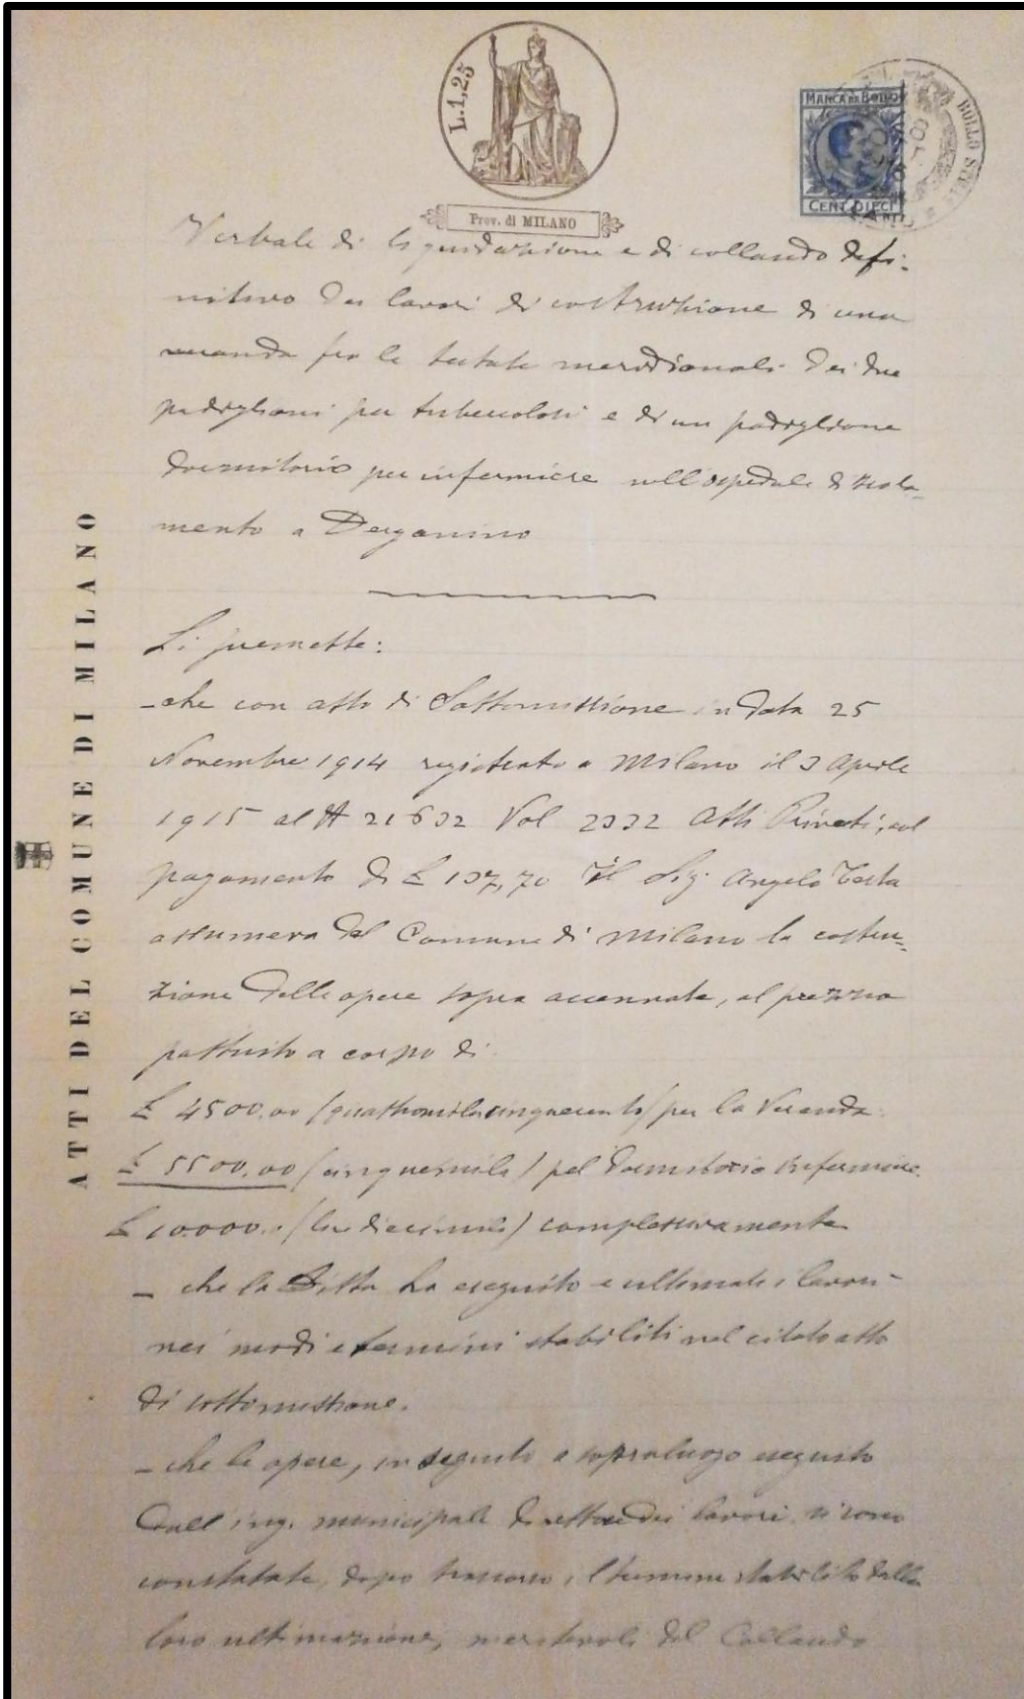 L. 1,25
Prov. di MILANO
MARCA DA BOLLO
CENT. DIECI
BOLLO
ATTI DEL COMUNE DI MILANO
Verbale di liquidazione e di collaudo defi-
nitivo dei lavori di costruzione di una
veranda fra le testate meridionali dei due
padiglioni per tubercolosi e di un padiglione
dormitorio per infermiere nell'ospedale di isola-
mento a Derganino
Si premette:
- che con atto di Sottomissione in data 25
Novembre 1914 registrato a Milano il 3 Aprile
1915 al N 21632 Vol 2332 Atti Privati, col
pagamento di £ 137,70 il Sig. Angelo Testa
assumeva dal Comune di Milano la costru-
zione delle opere sopra accennate, al prezzo
pattuito a corpo di
£ 4500.00 (quattromilacinquecento) per la Veranda
£ 5500.00 (cinquemila) pel dormitorio infermiere.
£ 10.000.. (lire diecimila) complessivamente
- che la Ditta ha eseguito e ultimato i lavori
nei modi e termini stabiliti nel citato atto
di sottomissione.
- che le opere, in seguito a sopraluogo eseguito
dall'ing. municipale direttore dei lavori si sono
constatate, dopo trascorso il termine stabilito dalla
loro ultimazione, meritevoli del Collaudo